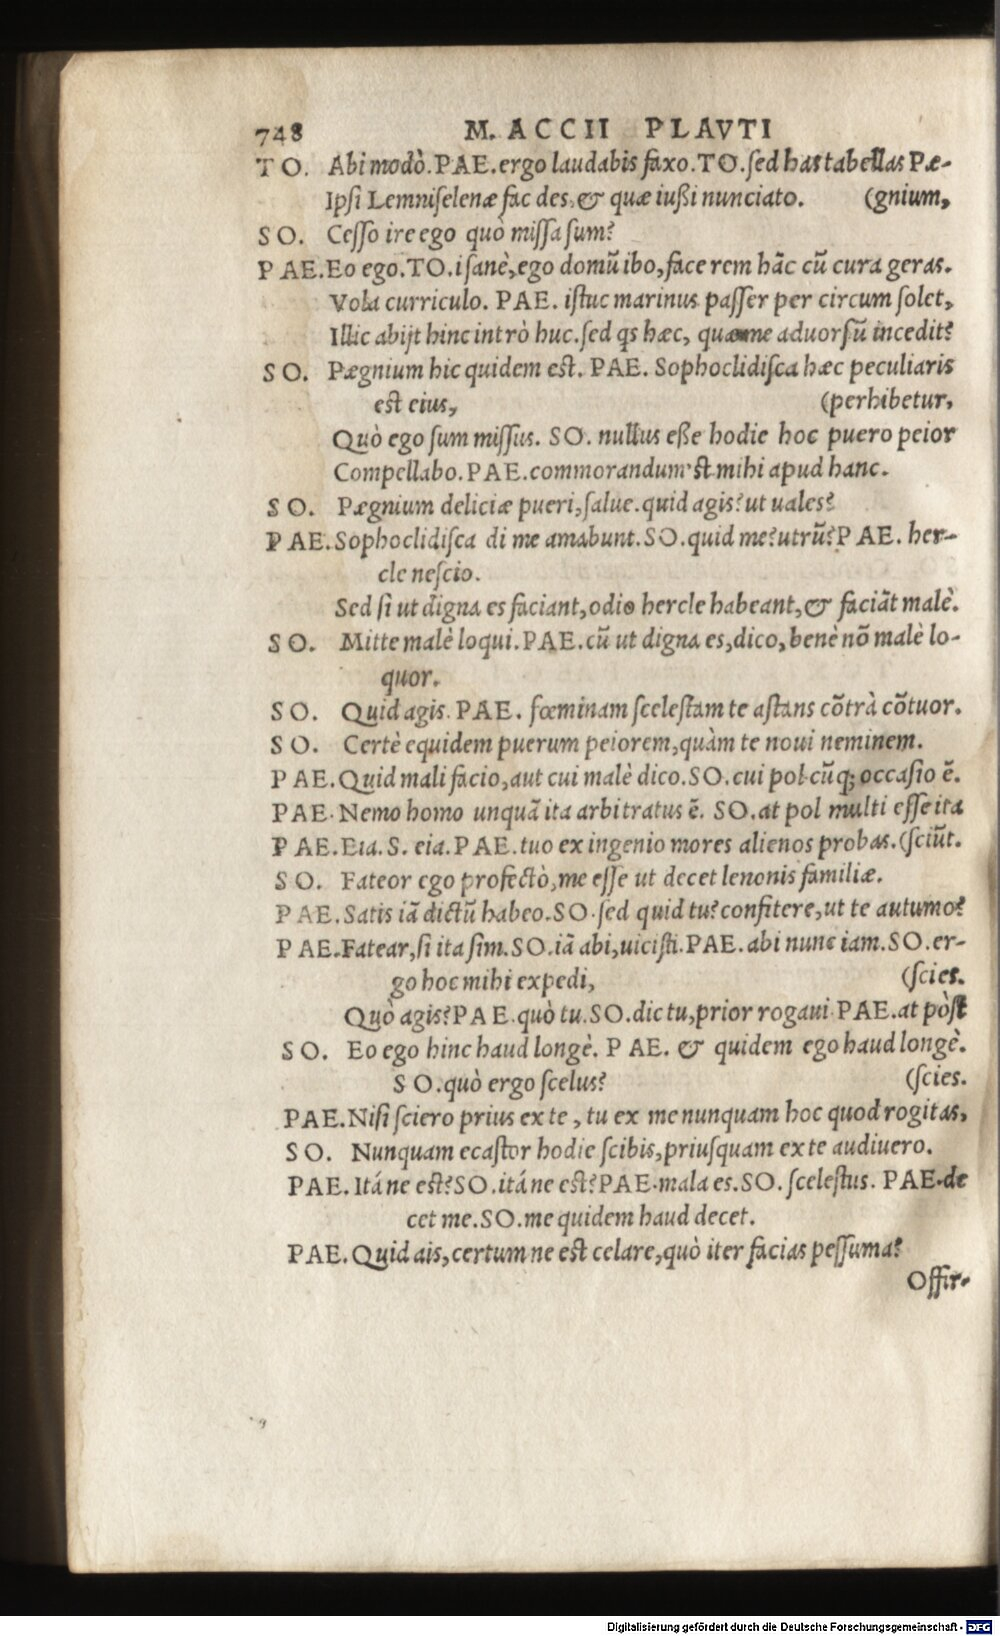 748 M. ACCII PLAVTI
TO. Abi modò. PAE. ergo laudabis faxo. TO. sed has tabellas Pæ-
Ipsi Lemniselenæ fac des, & quæ iußi nunciato. (gnium,
SO. Cesso ire ego quò missa sum?
PAE. Eo ego. TO. i sanè, ego domũ ibo, face rem hãc cũ cura geras.
Vola curriculo. PAE. istuc marinus passer per circum solet,
Illic abijt hinc intrò huc. sed qs hæc, quæ me aduorsũ incedit?
SO. Pægnium hic quidem est. PAE. Sophoclidisca hæc peculiaris
est eius, (perhibetur,
Quò ego sum missus. SO. nullus eße hodie hoc puero peior
Compellabo. PAE. commorandum'st mihi apud hanc.
SO. Pægnium deliciæ pueri, salue. quid agis? ut uales?
PAE. Sophoclidisca di me amabunt. SO. quid me? utrũ? PAE. her-
cle nescio.
Sed si ut digna es faciant, odio hercle habeant, & faciãt malè.
SO. Mitte malè loqui. PAE. cũ ut digna es, dico, benè nõ malè lo-
quor.
SO. Quid agis. PAE. fœminam scelestam te astans cõtrà cõtuor.
SO. Certè equidem puerum peiorem, quàm te noui neminem.
PAE. Quid mali facio, aut cui malè dico. SO. cui pol cũq; occasio ẽ.
PAE. Nemo homo unquã ita arbitratus ẽ. SO. at pol multi esse ita
PAE. Eia. S. eia. PAE. tuo ex ingenio mores alienos probas. (sciũt.
SO. Fateor ego profectò, me esse ut decet lenonis familiæ.
PAE. Satis iã dictũ habeo. SO. sed quid tu? confitere, ut te autumo?
PAE. Fatear, si ita sim. SO. iã abi, uicisti. PAE. abi nunc iam. SO. er-
go hoc mihi expedi, (scies.
Quò agis? PAE. quò tu. SO. dic tu, prior rogaui PAE. at pòst
SO. Eo ego hinc haud longè. PAE. & quidem ego haud longè.
SO. quò ergo scelus? (scies.
PAE. Nisi sciero prius ex te, tu ex me nunquam hoc quod rogitas,
SO. Nunquam ecastor hodie scibis, priusquam ex te audiuero.
PAE. Itáne est? SO. itáne est? PAE. mala es. SO. scelestus. PAE. de
cet me. SO. me quidem haud decet.
PAE. Quid ais, certum ne est celare, quò iter facias pessuma?
Offir-
Digitalisierung gefördert durch die Deutsche Forschungsgemeinschaft - DFG